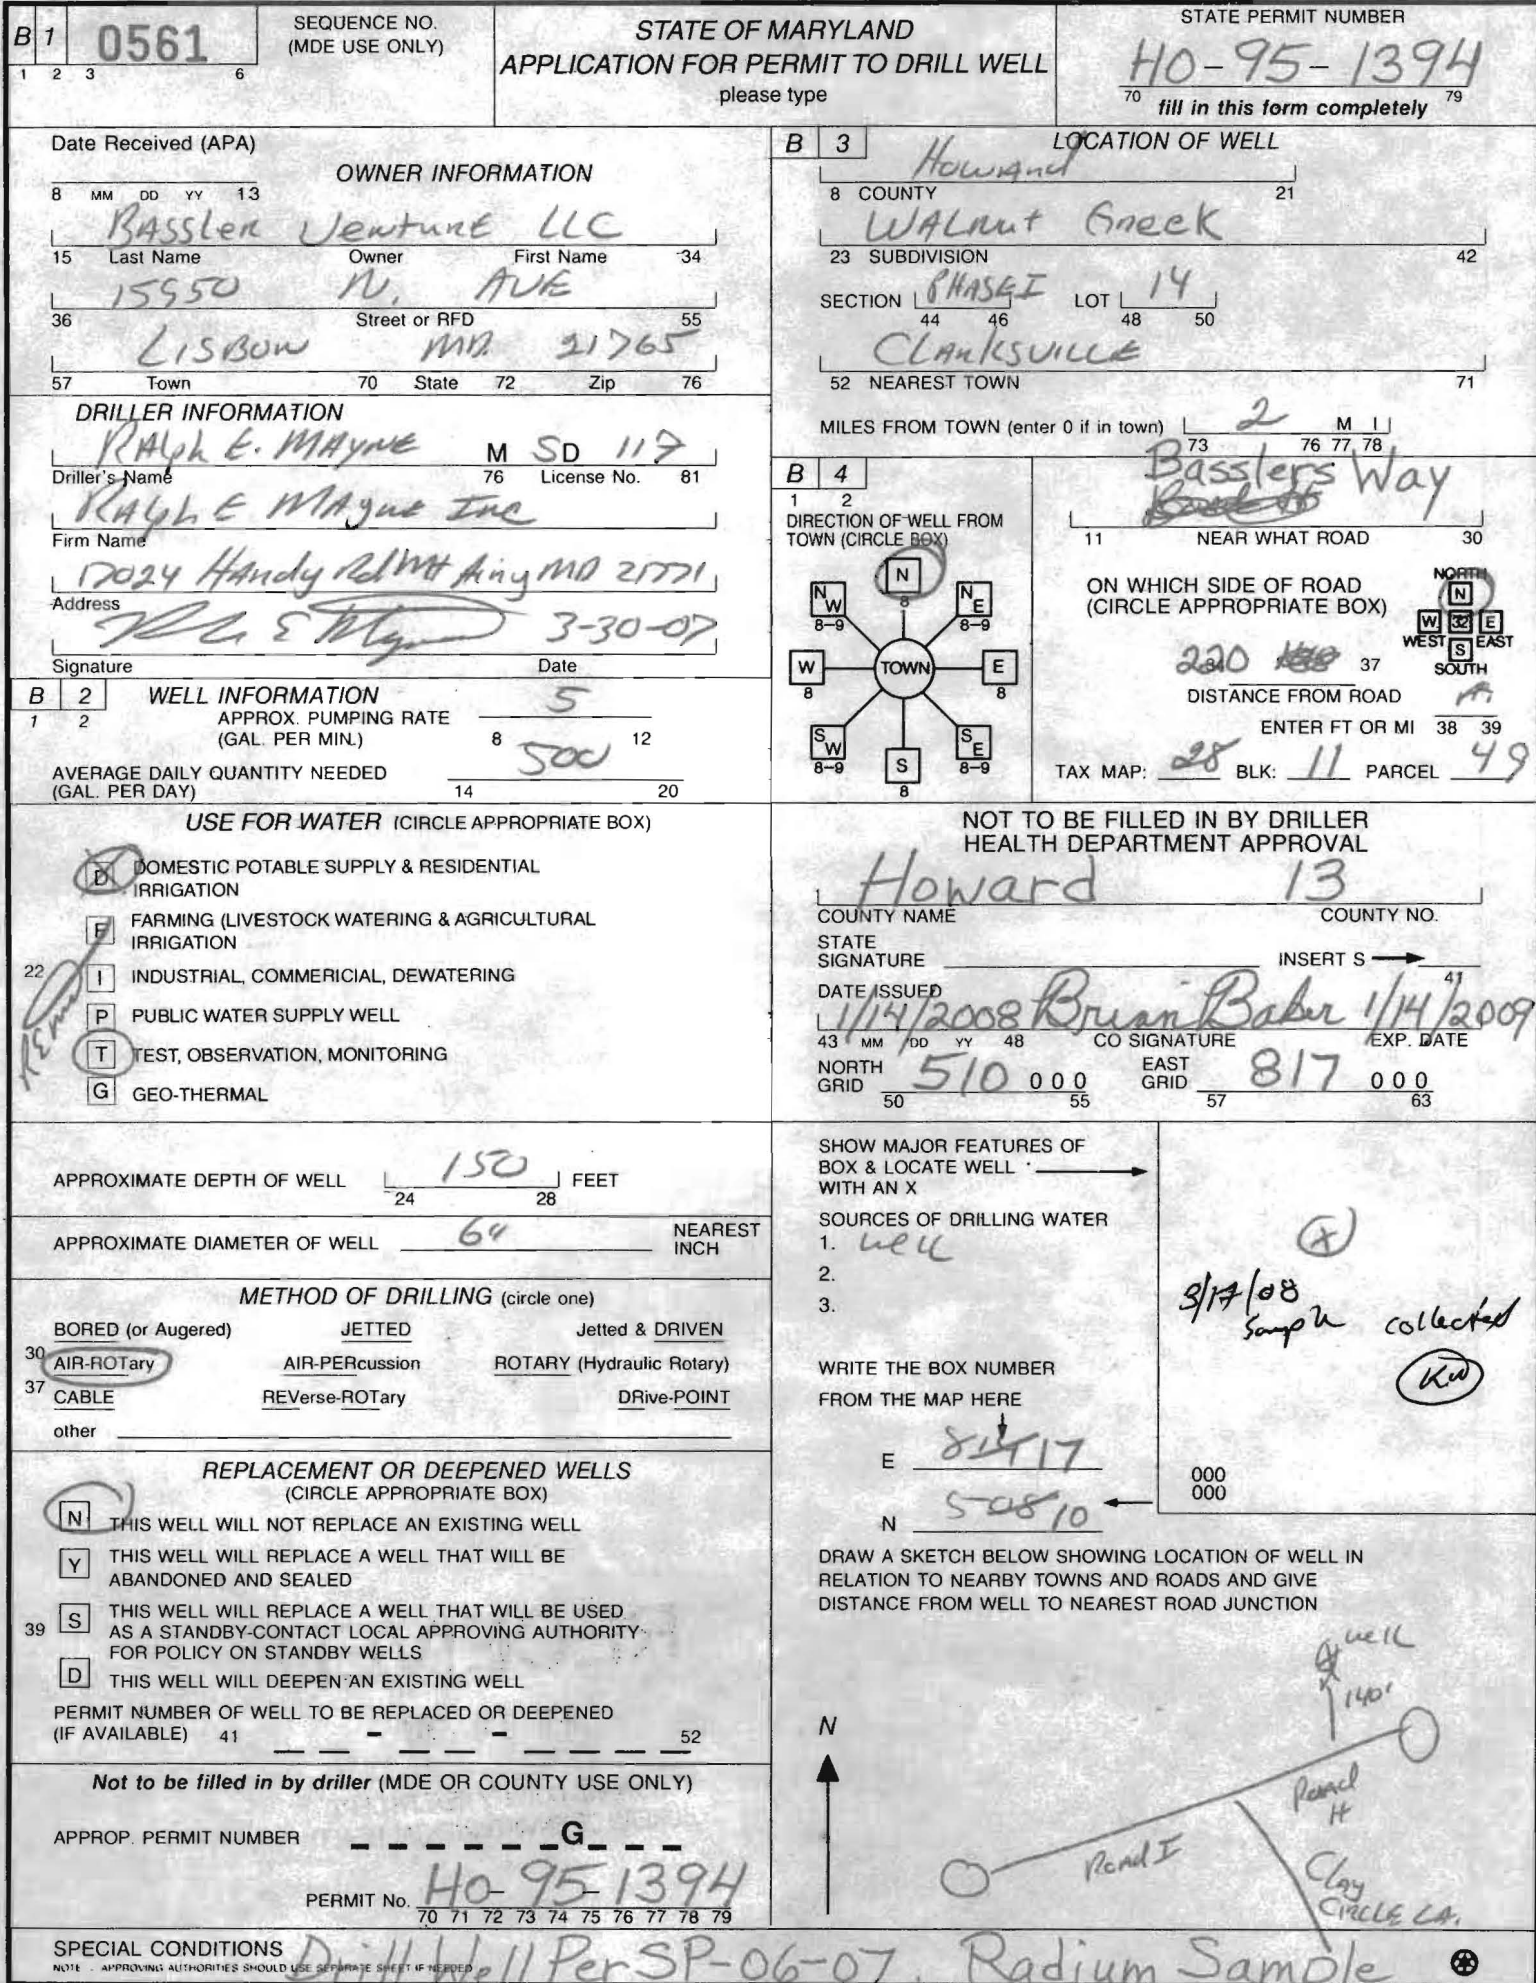 B 1 0561 SEQUENCE NO. (MDE USE ONLY)
1 2 3 6
STATE OF MARYLAND
APPLICATION FOR PERMIT TO DRILL WELL
please type
STATE PERMIT NUMBER
HO-95-1394
70 fill in this form completely 79
Date Received (APA)
OWNER INFORMATION
8 MM DD YY 13
BASSLER Venture LLC
15 Last Name Owner First Name 34
15950 N. AVE
36 Street or RFD 55
LISBON MD. 21765
57 Town 70 State 72 Zip 76
DRILLER INFORMATION
RALPH E. MAYNE M SD 117
Driller's Name 76 License No. 81
RALPH E MAYNE Inc
Firm Name
17024 HAndy Rd Mt Airy MD 21771
Address
3-30-07
Signature Date
B 2 WELL INFORMATION
1 2 APPROX. PUMPING RATE 5
(GAL. PER MIN.) 8 12
AVERAGE DAILY QUANTITY NEEDED 500
(GAL. PER DAY) 14 20
USE FOR WATER (CIRCLE APPROPRIATE BOX)
D DOMESTIC POTABLE SUPPLY & RESIDENTIAL
IRRIGATION
F FARMING (LIVESTOCK WATERING & AGRICULTURAL
IRRIGATION
22 I INDUSTRIAL, COMMERICIAL, DEWATERING
P PUBLIC WATER SUPPLY WELL
T TEST, OBSERVATION, MONITORING
G GEO-THERMAL
APPROXIMATE DEPTH OF WELL 150 FEET
24 28
APPROXIMATE DIAMETER OF WELL 6" NEAREST
INCH
METHOD OF DRILLING (circle one)
BORED (or Augered) JETTED Jetted & DRIVEN
30 AIR-ROTary AIR-PERcussion ROTARY (Hydraulic Rotary)
37 CABLE REVerse-ROTary DRive-POINT
other
REPLACEMENT OR DEEPENED WELLS
(CIRCLE APPROPRIATE BOX)
N THIS WELL WILL NOT REPLACE AN EXISTING WELL
Y THIS WELL WILL REPLACE A WELL THAT WILL BE
ABANDONED AND SEALED
39 S THIS WELL WILL REPLACE A WELL THAT WILL BE USED
AS A STANDBY-CONTACT LOCAL APPROVING AUTHORITY
FOR POLICY ON STANDBY WELLS
D THIS WELL WILL DEEPEN AN EXISTING WELL
PERMIT NUMBER OF WELL TO BE REPLACED OR DEEPENED
(IF AVAILABLE) 41 - - 52
Not to be filled in by driller (MDE OR COUNTY USE ONLY)
APPROP. PERMIT NUMBER G
PERMIT No. HO-95-1394
70 71 72 73 74 75 76 77 78 79
B 3 LOCATION OF WELL
Howard
8 COUNTY 21
WALnut Creek
23 SUBDIVISION 42
SECTION PHASE I LOT 14
44 46 48 50
CLARKSVILLE
52 NEAREST TOWN 71
MILES FROM TOWN (enter 0 if in town) 2 M I
73 76 77 78
B 4
1 2
Basslers Way
11 NEAR WHAT ROAD 30
DIRECTION OF WELL FROM
TOWN (CIRCLE BOX)
N 8
NW 8-9 NE 8-9
W 8 TOWN E 8
SW 8-9 SE 8-9
S 8
ON WHICH SIDE OF ROAD
(CIRCLE APPROPRIATE BOX)
NORTH
N
W 32 E
WEST EAST
S
SOUTH
220 34 37
DISTANCE FROM ROAD
ENTER FT OR MI 38 39
TAX MAP: 28 BLK: 11 PARCEL 49
NOT TO BE FILLED IN BY DRILLER
HEALTH DEPARTMENT APPROVAL
Howard 13
COUNTY NAME COUNTY NO.
STATE
SIGNATURE INSERT S 41
DATE ISSUED
1/14/2008 Brian Baker 1/14/2009
43 MM DD YY 48 CO SIGNATURE EXP. DATE
NORTH GRID 510 000 EAST GRID 817 000
50 55 57 63
SHOW MAJOR FEATURES OF
BOX & LOCATE WELL
WITH AN X
SOURCES OF DRILLING WATER
1. well
2.
3.
X
3/17/08
Sample collected
KW
WRITE THE BOX NUMBER
FROM THE MAP HERE
E 817
N 510
000
000
DRAW A SKETCH BELOW SHOWING LOCATION OF WELL IN
RELATION TO NEARBY TOWNS AND ROADS AND GIVE
DISTANCE FROM WELL TO NEAREST ROAD JUNCTION
well
140'
N
Road H
Road I
Clay
CIRCLE LA.
SPECIAL CONDITIONS Drill Well Per SP-06-07. Radium Sample
NOTE - APPROVING AUTHORITIES SHOULD USE SEPARATE SHEET IF NEEDED